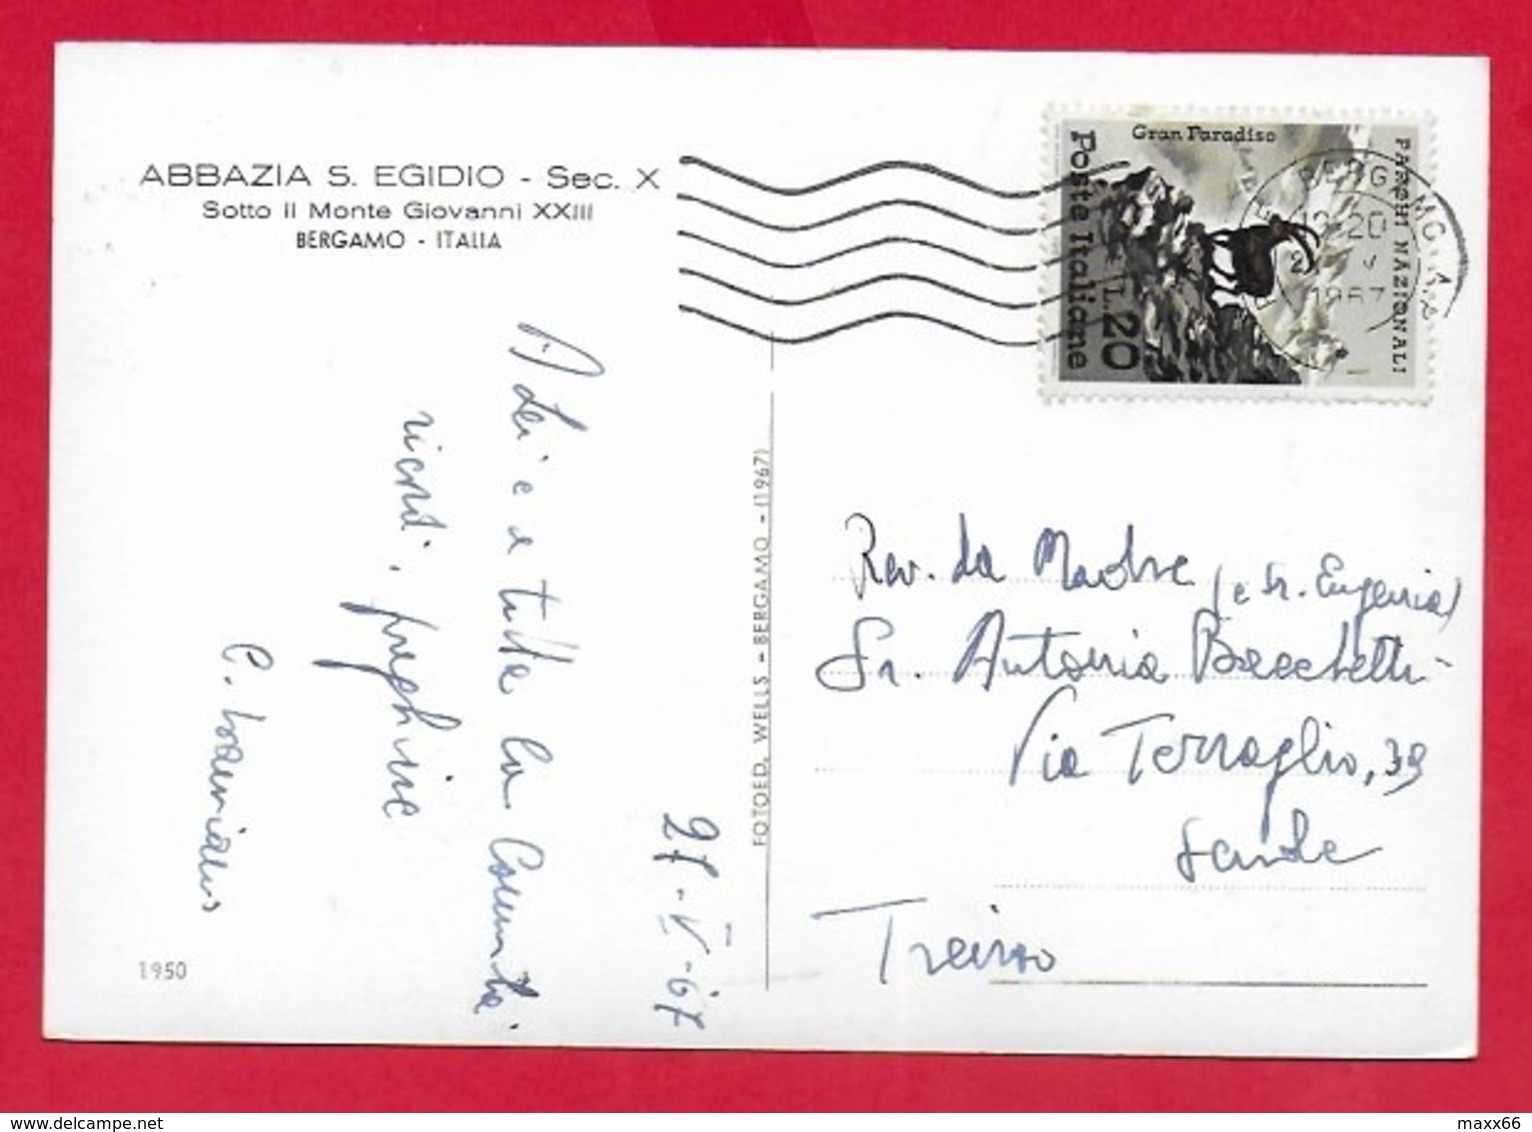 ABBAZIA S. EGIDIO - Sec. X
Sotto il Monte Giovanni XXIII
BERGAMO - ITALIA
Gran Paradiso
Poste Italiane
L.20
PARCHI NAZIONALI
1967
A Lei e a tutta la Comunità
ricordi, preghiere
C.
V-67
FOTOED. WELLS - BERGAMO - (1967)
Rev. da Madre (e Sr. Eugenia)
Sr. Antonia Bacchetti
Via Terraglio, 39
Treviso
1950
delcampe.net
maxx66